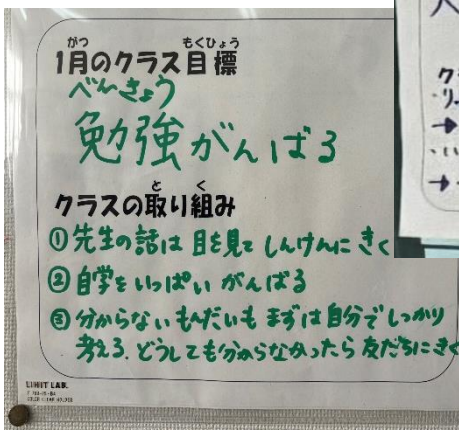 がつ もくひょう
1月のクラス目標
べんきょう
勉強がんばる
と く
クラスの取り組み
①先生の話は目を見てしんけんにきく
②自学をいっぱいがんばる
③分からないもんだいもまずは自分でしっかり
考える。どうしても分からなかったら友だちにきく
LIHIT LAB.